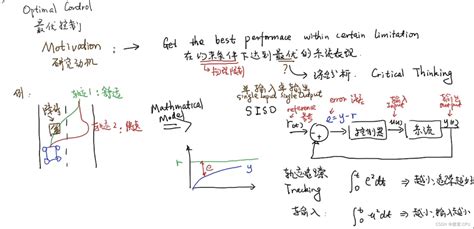 Optimal Control
最优控制
Motivation:
研究动机
Get the best performace within certain limitation
在约束条件下达到最优的系统表现
综合分析. Critical Thinking
例:
轨迹1:舒适
障碍
轨迹2:
Mathmatical
Model
单输入单输出
single Input single Output
SISO
reference
r(t)
error 误差
e=y-r
控制器
输入
u(t)
系统
输出
output
r
e
y
t
轨迹追踪
Tracking
∫₀ᵗ e²dt ⇒ 越小追踪越
输入:
∫₀ᵗ u²dt ⇒ 越小,输入越小